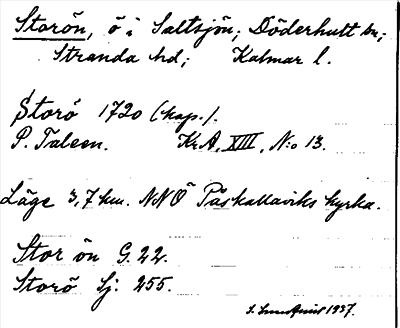 Storön, ö i Saltsjön; Döderhult sn;
Stranda hd; Kalmar l.
Storö 1720 (kap.).
P. Taleen. Kr.A, XIII, N:o 13.
Läge 3,7 km. NNÖ Påskallaviks kyrka.
Stor ön G.22.
Storö Sj: 255.
1937.